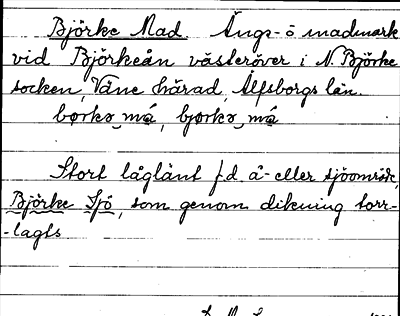 Björke Mad. Ängs- o madmark
vid Björkeån västeröver i N. Björke
socken, Väne härad, Älfsborgs län.
børkə_må, bjørkə_må
Stort låglänt f.d. å- eller sjöområde,
Björke Sjö, som genom dikning torr-
-lagts